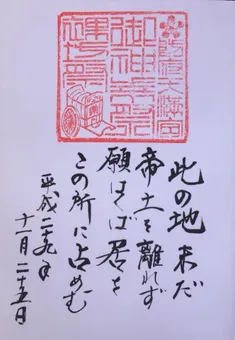 防府天満宮
御神幸祭
裸坊祭
此の地未だ
帝土を離れず
願はくば居を
この所に占めむ
平成二十九年
十一月二十五日